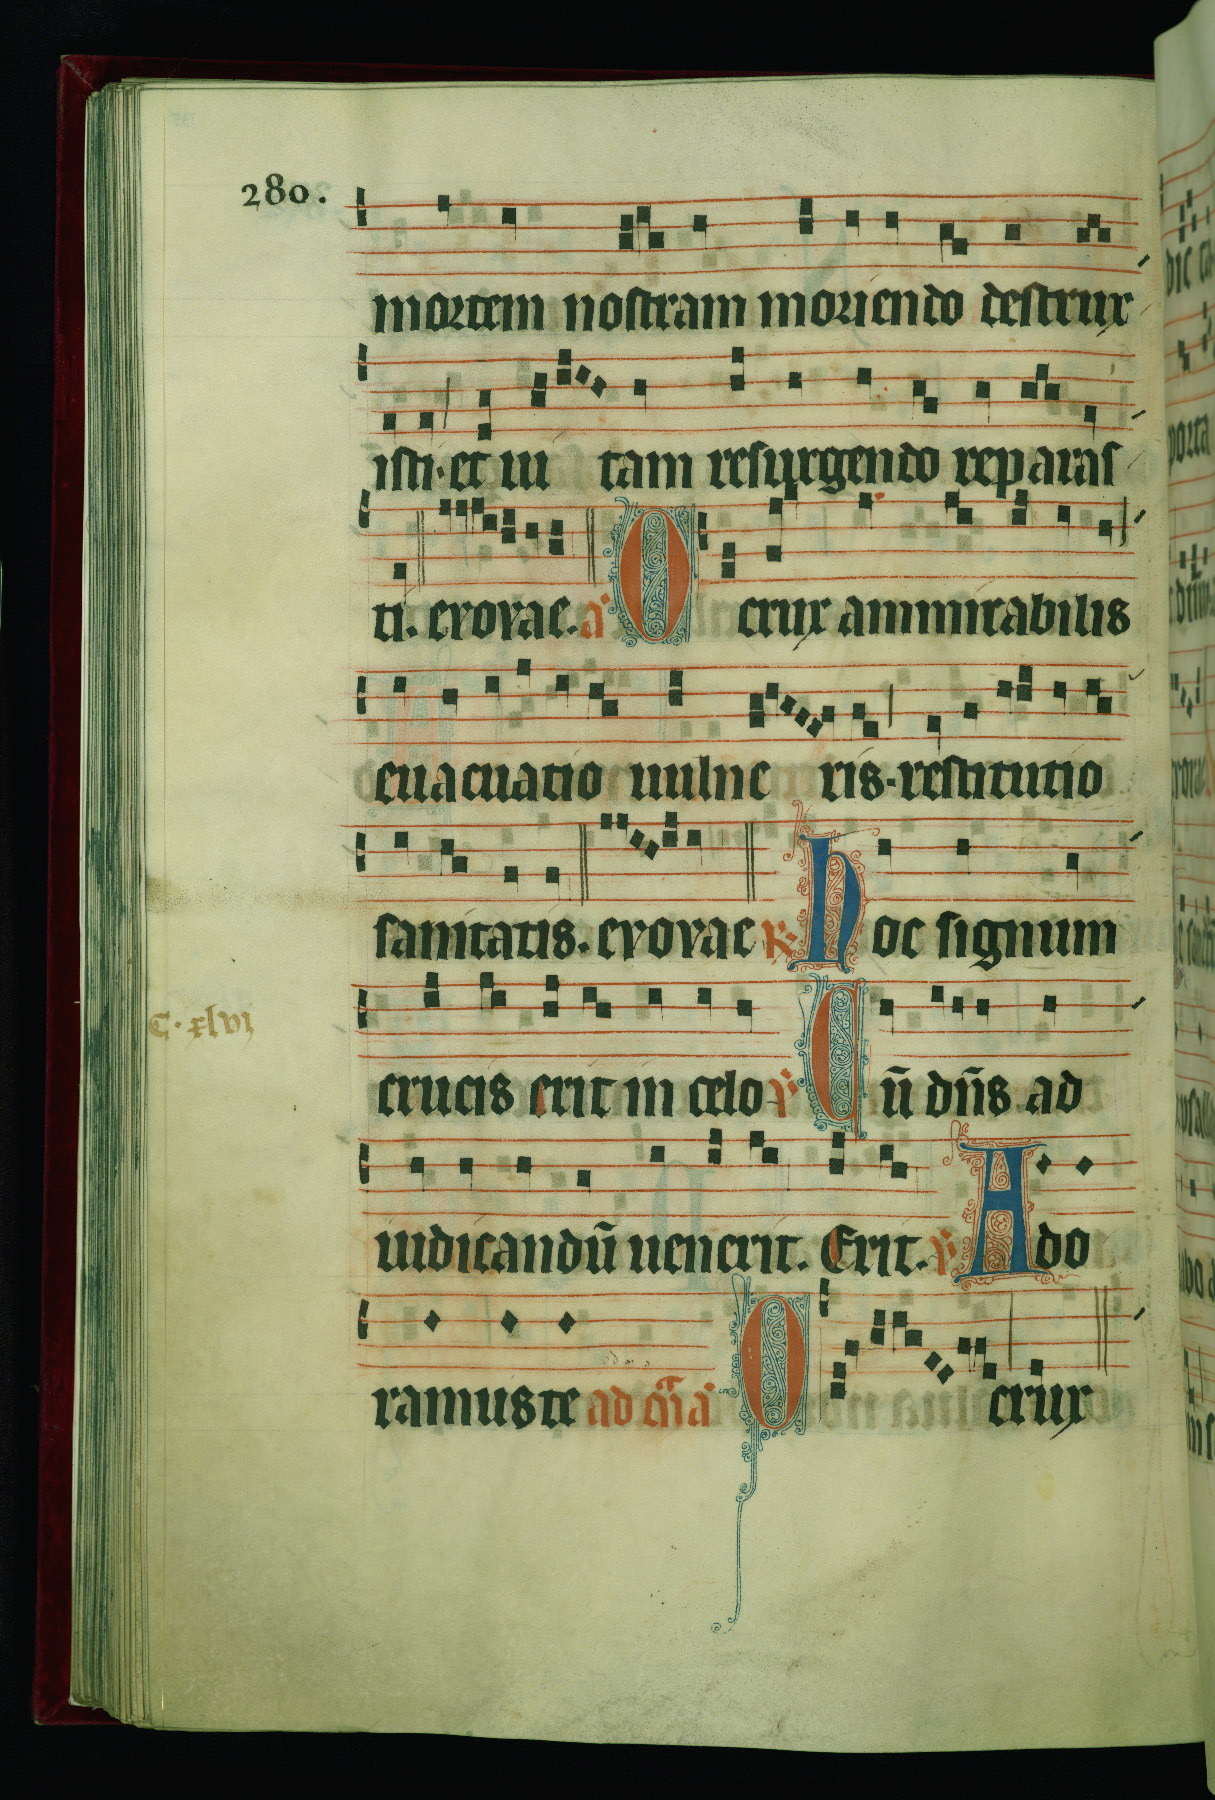 280.
mortem nostram moriendo destrux
isti·et ui tam resurgendo reparas
ti. evovae. a O crux ammirabilis
euacuatio uulne ris·restitutio
sanitatis. evovae R Hoc signum
C·xlvi
crucis erit in celo V Cū dn̄s ad
iudicandū uenerit. Erit. V Ado
ramus te ad O crux